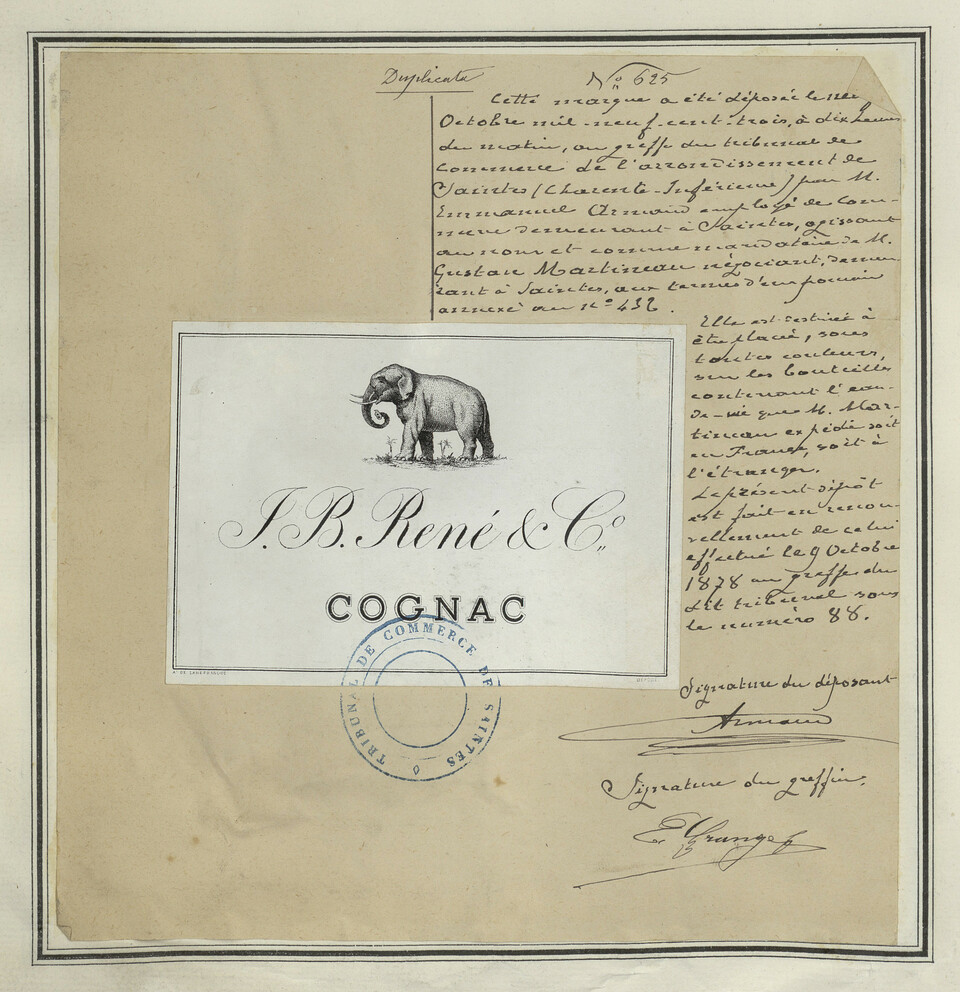 Duplicata
N° 625
Cette marque a été déposée le neuf
Octobre mil-neuf-cent-trois, à dix heures
du matin, au greffe du tribunal de
Commerce de l'arrondissement de
Saintes (Charente-Inférieure) par M.
Emmanuel Armand employé de Com-
merce demeurant à Saintes, agissant
au nom et comme mandataire de M.
Gustave Martineau négociant, demeu-
rant à Saintes, aux termes d'un pouvoir
annexé au N° 432.
Elle est destinée à
être placée, sous
toutes couleurs,
sur les bouteilles
contenant l'eau-
de-vie que M. Mar-
tineau expédie soit
en France, soit à
l'étranger.
Le présent dépôt
est fait en renou-
vellement de celui
effectué le 9 Octobre
1878 au greffe du
dit tribunal sous
le numéro 88.
J.B. René & Co.
COGNAC
TRIBUNAL DE COMMERCE DE SAINTES
Signature du déposant
Armand
Signature du greffier.